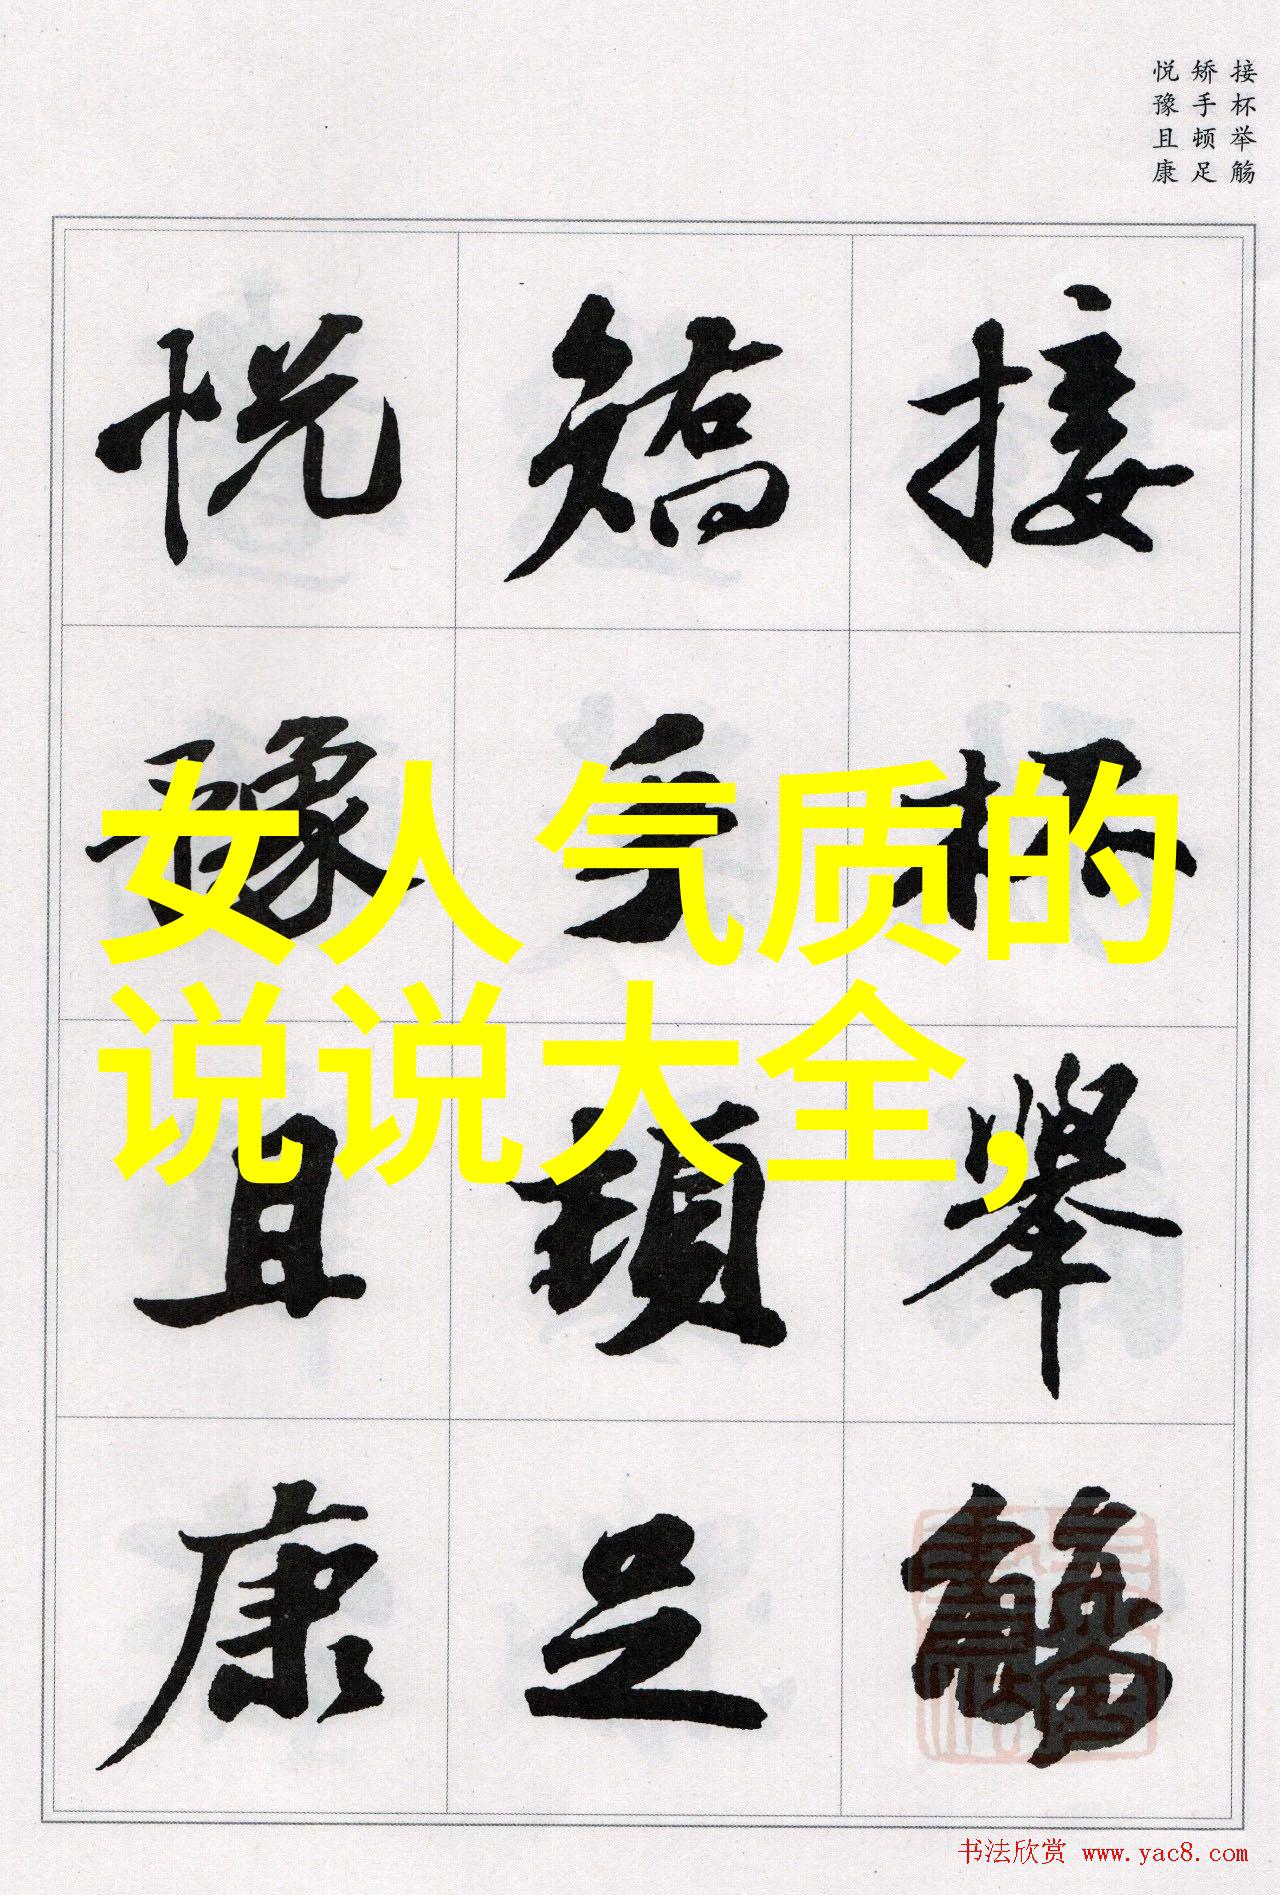 接杯举觞
矫手顿足
悦豫且康
接杯舉觴
矯手頓足
悦豫且康
女人气质的
说说大全,
书法欣赏 www.yac8.com